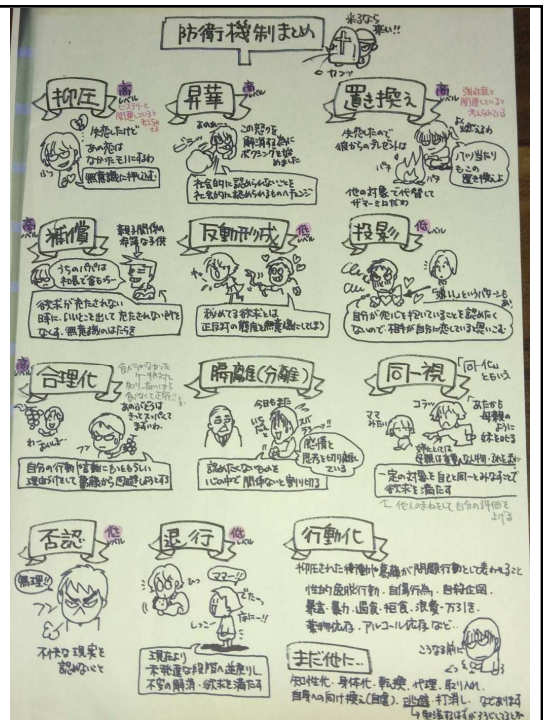 防衛機制まとめ
来るなら
来い!!
抑圧
高
レベル
ヒステリーと
関連していると
失恋したけど
あの恋は
なかったモノにするわ
無意識に押し込む
昇華
高
レベル
この怒りを
解消する為に
ボクシングを始
めました
社会的に認められないことを
社会的に認められるものへチェンジ
置き換え
高
レベル
関連していると
考えられている
失恋したので
彼からのプレゼントは
よく燃えるわ
パチ
パチ
八つ当たり
もこの
置き換えよ
他の対象で代替して
ザマーミロだわ
補償
高
レベル
親子関係の
希薄な子供
うちのパパは
欲求が充たされない
なくす、無意識のはたらき
反動形成
低
レベル
秘めてる欲求とは
正反対の態度を無意識にしてしまう
投影
低
レベル
というパターンも
自分が恋心を抱いていることを認めたく
ないので相手が自分に恋していると思いこむ
合理化
高
レベル
あのぶどうは
きっとスッパくて
まずいわ
自分の行動や言動にもっともらしい
理由づけをして葛藤から回避しようとする
隔離(分離)
今日もまた
感情と
思考を切り離して
いる
認めたくないものを
心の中で関係ないと割り切る
同一視
「同一化」
ともいう
コラッ
ママ
みたい
あたかも
母親の
ように
妹をしかる
一定の対象と自己を同一とみなすことで
欲求を満たす
他人のまねをして自分の評価を
上げる
否認
低
レベル
無理!!
不快な現実を
認めないこと
退行
低
レベル
ママー!!
しっこー
現在より
未発達な段階へ逆戻りし
不安の解消・欲求を満たす
行動化
抑圧された衝動や葛藤が問題行動として表われること
性的逸脱行動・自傷行為・自殺企図
暴言・暴力・過食・拒食・浪費・万引き・
薬物依存・アルコール依存など…
こうなる前に
まだ他に…
知性化・身体化・転換・代理・取り入れ
自身への向け換え(自虐)・逃避・打消し などあります